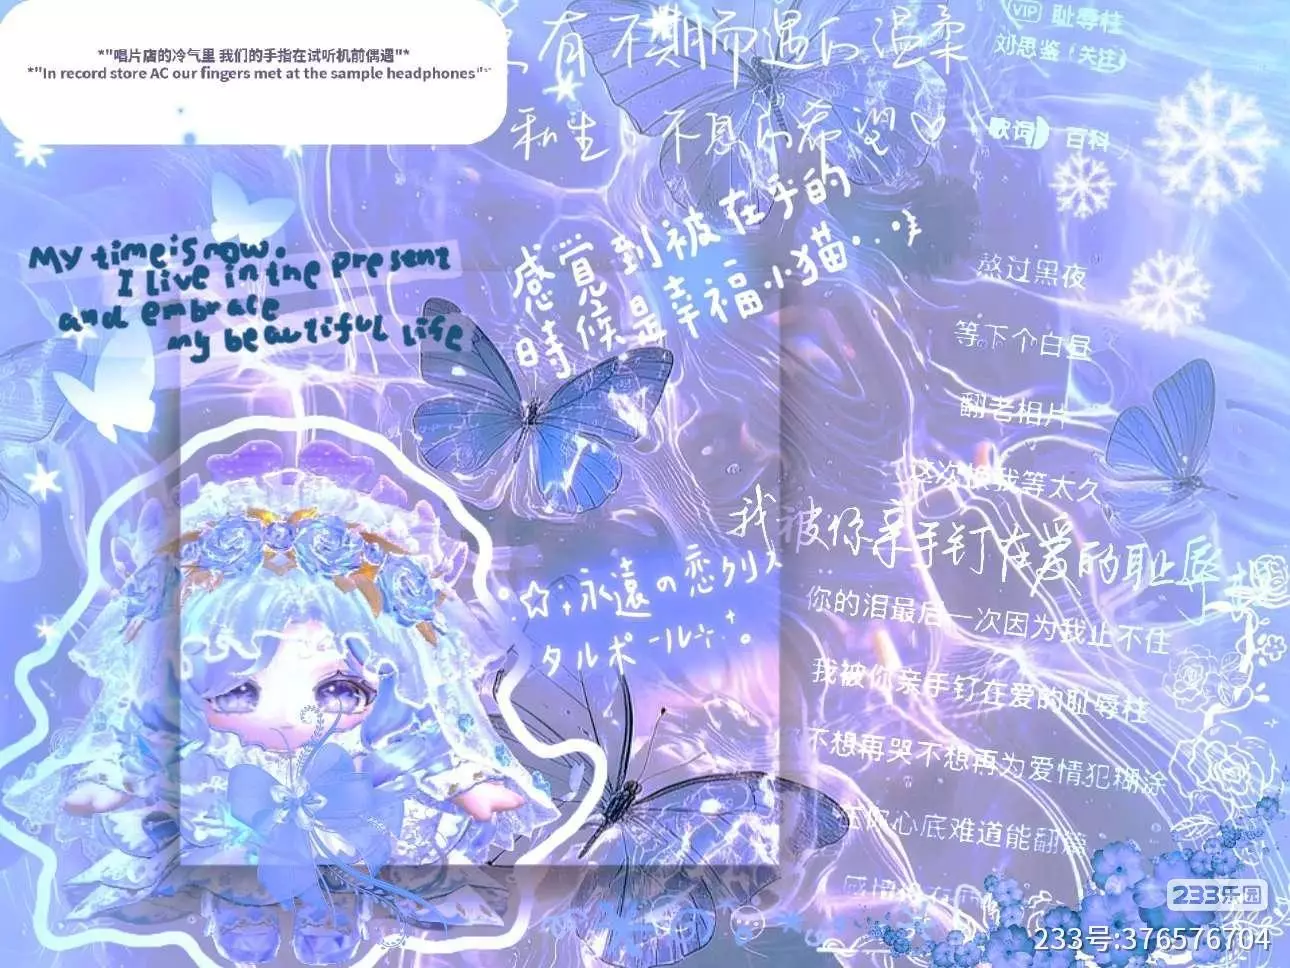 *"唱片店的冷气里 我们的手指在试听机前偶遇"*
*"In record store AC our fingers met at the sample headphones"*
有不期而遇的温柔
和生 不息的希望♡
VIP 耻辱柱
刘思鉴（关注）
歌词 百科
My time is now.
I live in the present
and embrace
my beautiful life
感觉到被在乎的
時候是幸福小猫..
熬过黑夜
等下个白昼
翻老相片
这次换我等太久
我被你亲手钉在爱的耻辱
☆永遠の恋クリス
タルボール
你的泪最后一次因为我止不住
我被你亲手钉在爱的耻辱柱
不想再哭不想再为爱情犯糊涂
在你心底难道能翻篇
233乐园
233号:376576704